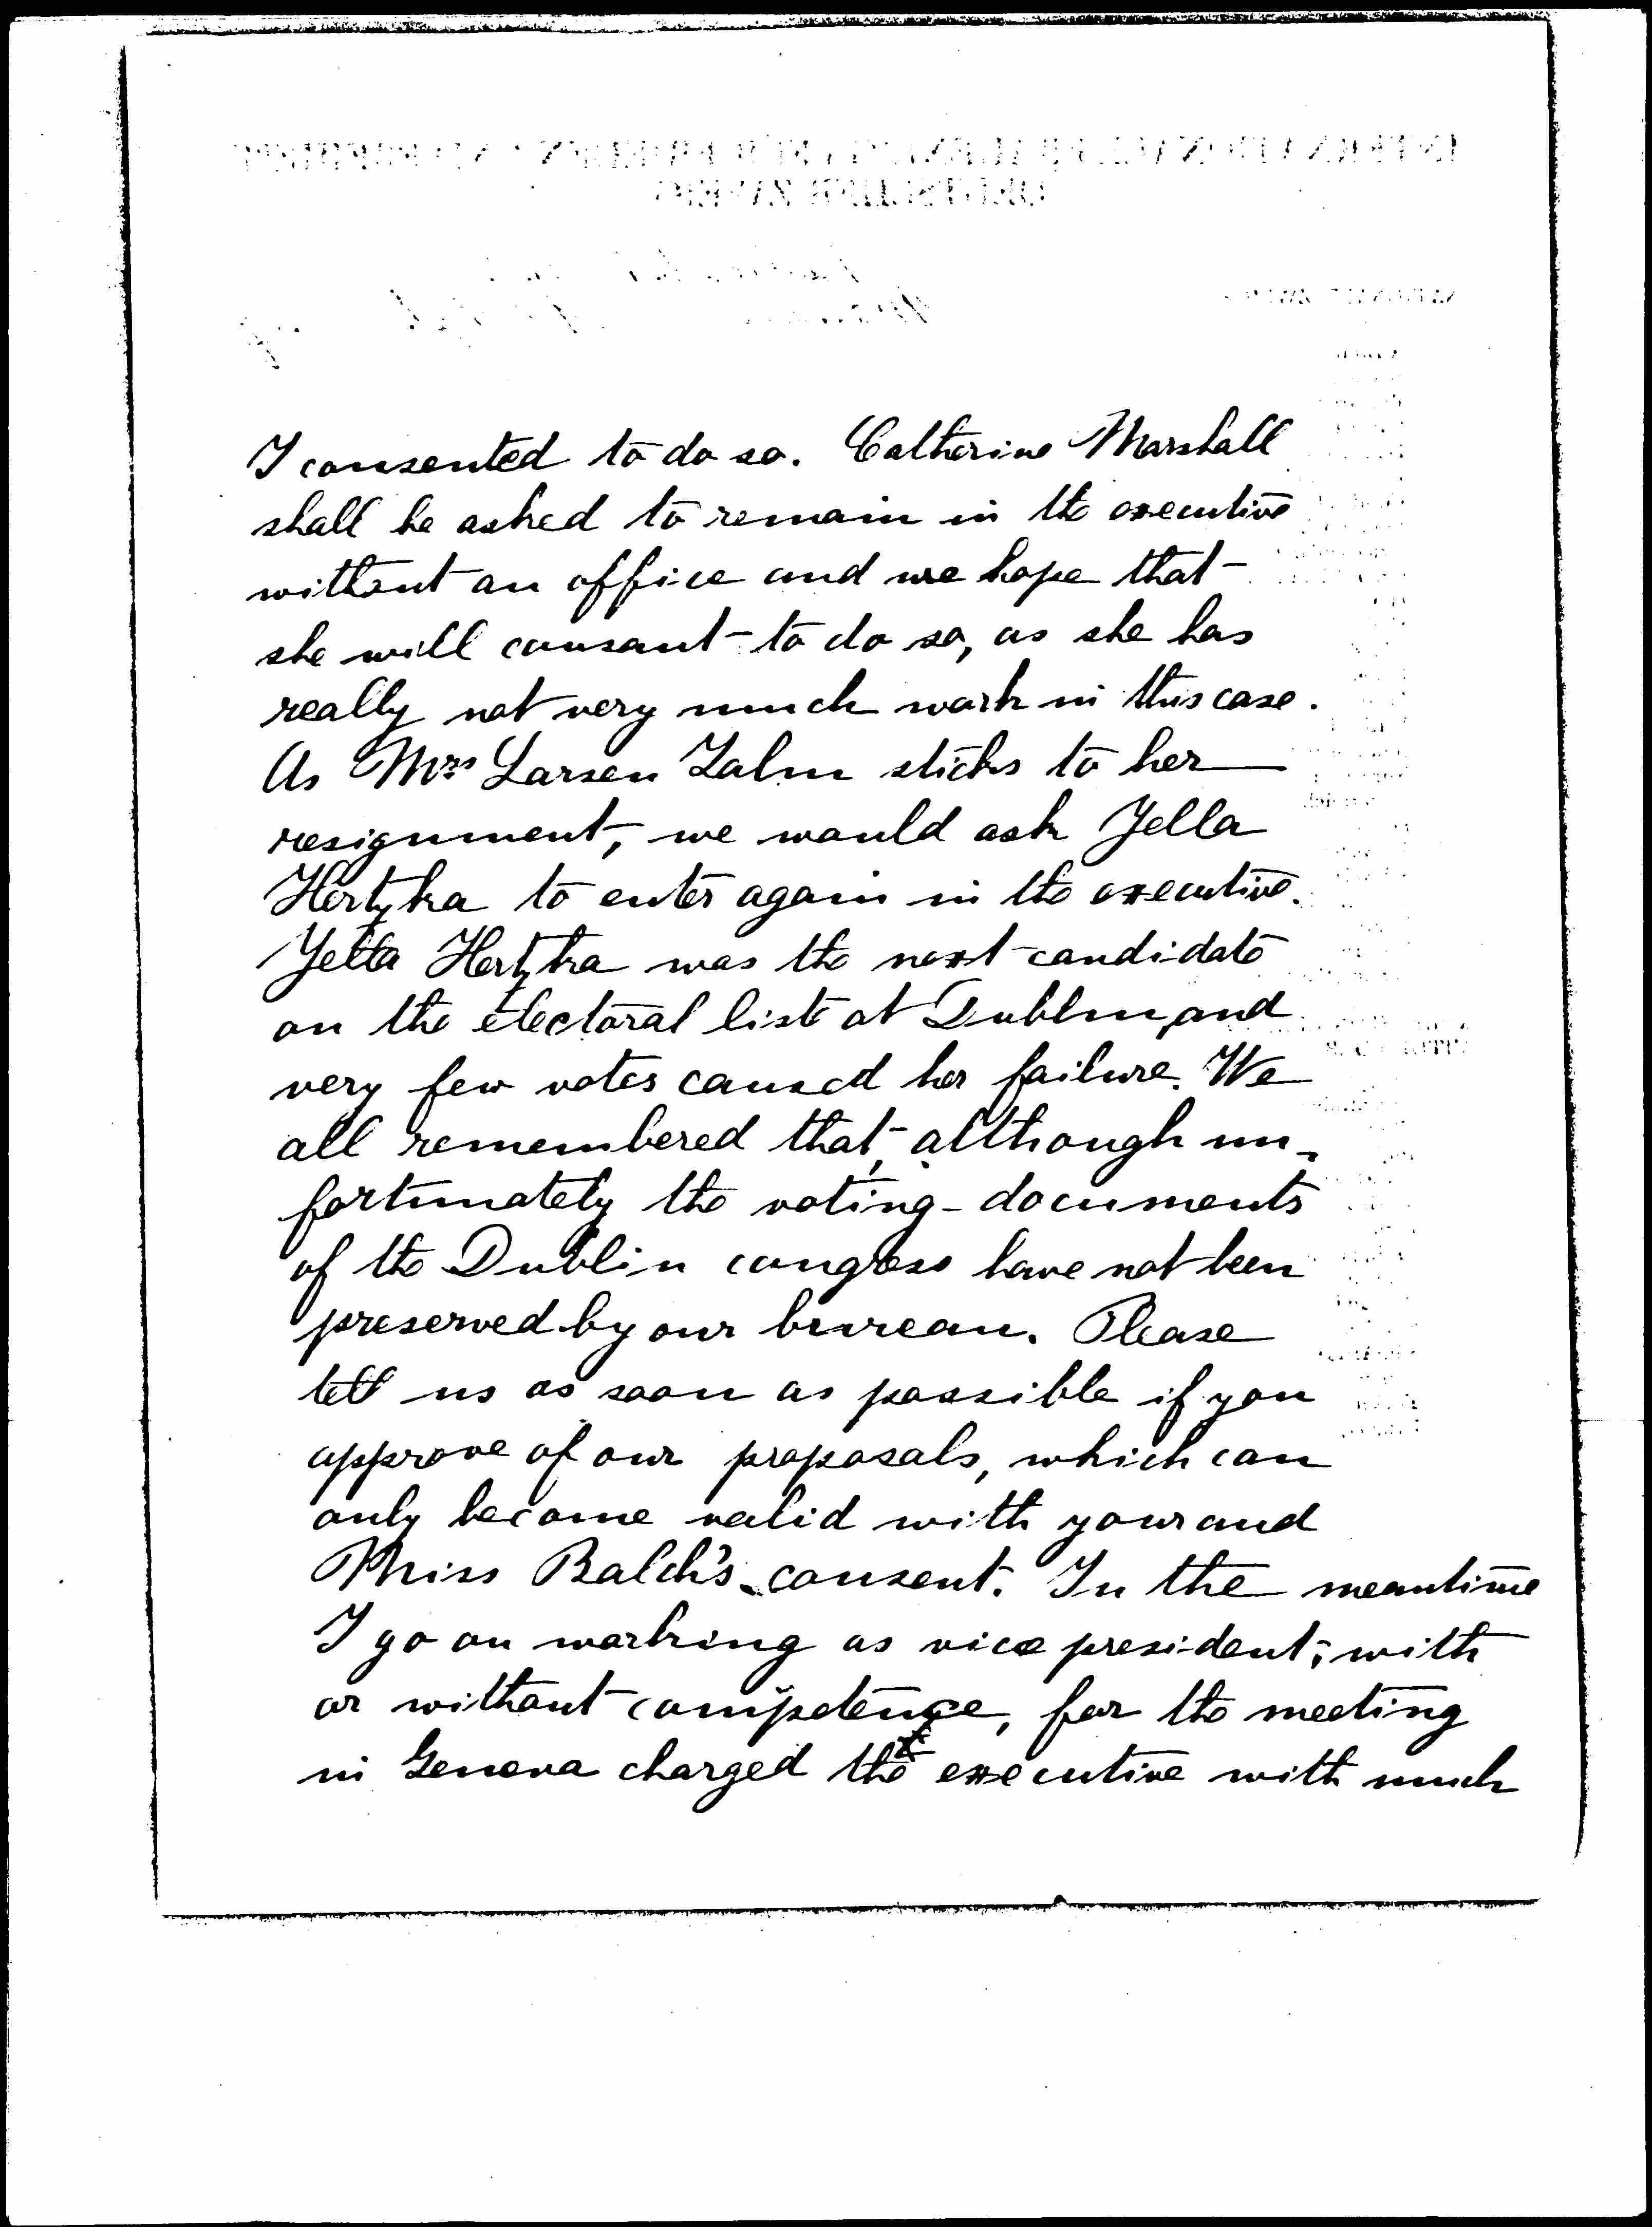 I consented to do so. Catherine Marshall
shall be asked to remain in the executive
without an office and we hope that
she will consant to do so, as she has
really not very much work in this case.
As Mrs Larsen Zahn sticks to her
resignment, we would ask Yella
Hertzka to enter again in the executive.
Yella Hertzka was the next candidate
on the electoral list at Dublin, and
very few votes caused her failure. We
all remembered that, although un-
fortunately the voting-documents
of the Dublin congress have not been
preserved by our bureau. Please
tell us as soon as possible if you
approve of our proposals, which can
only become valid with your and
Miss Balch's consent. In the meantime
I go on working as vice president, with
or without competence, for the meeting
in Geneva charged the executive with much